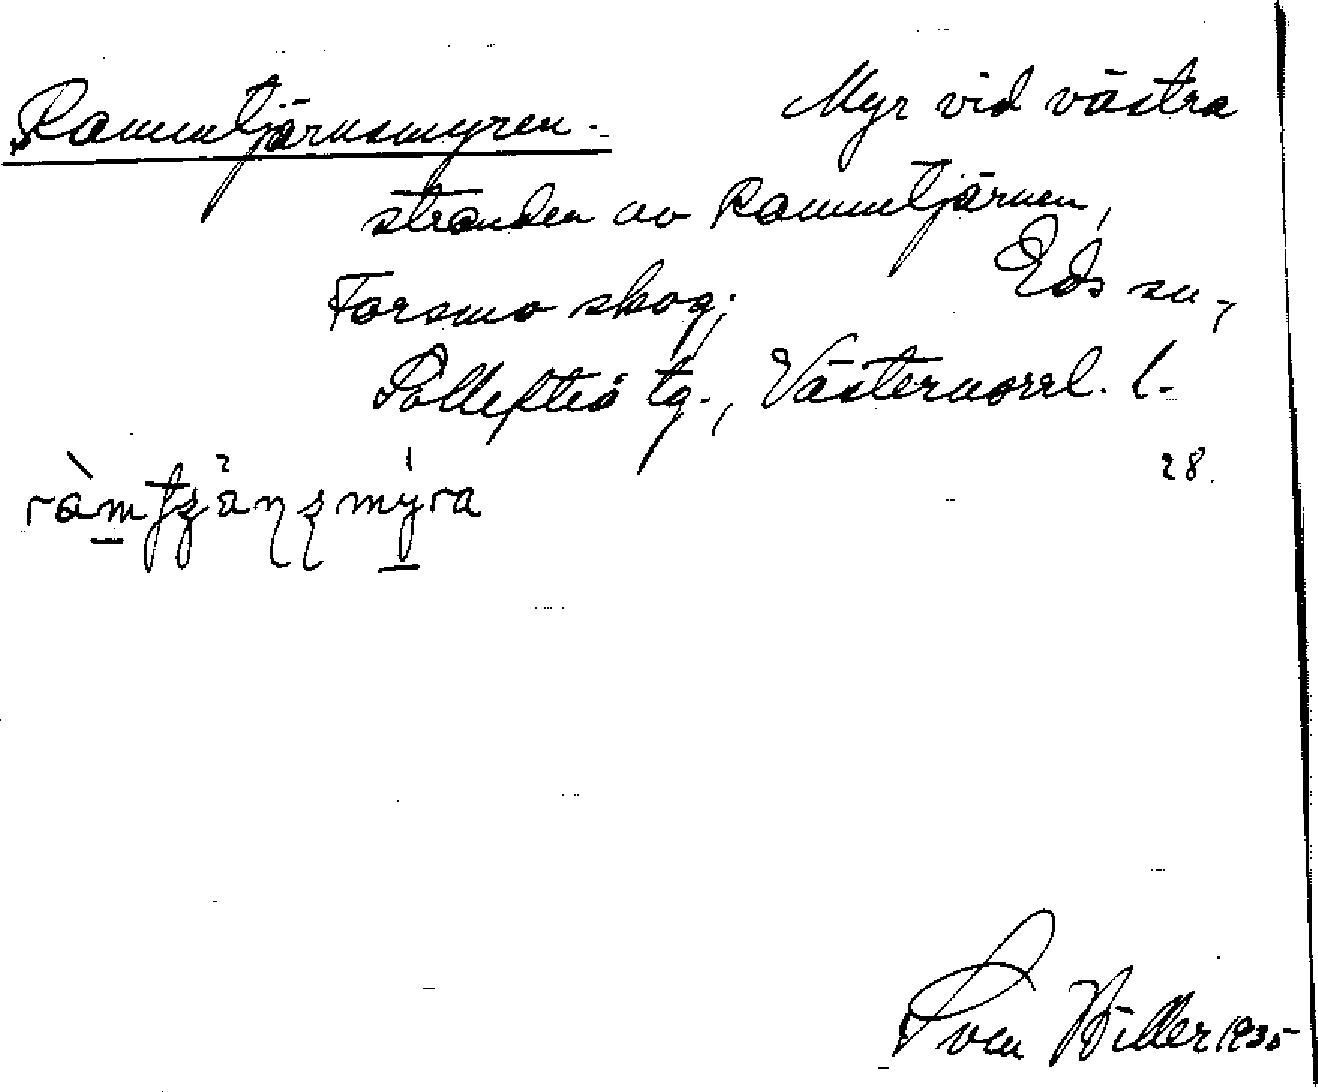 Rammtjärnsmyren. Myr vid västra
stranden av Rammtjärnen,
Forsmo skog; Eds sn,
Sollefteå tg., Västernorrl. l.
28.
Sven Hiller 1935